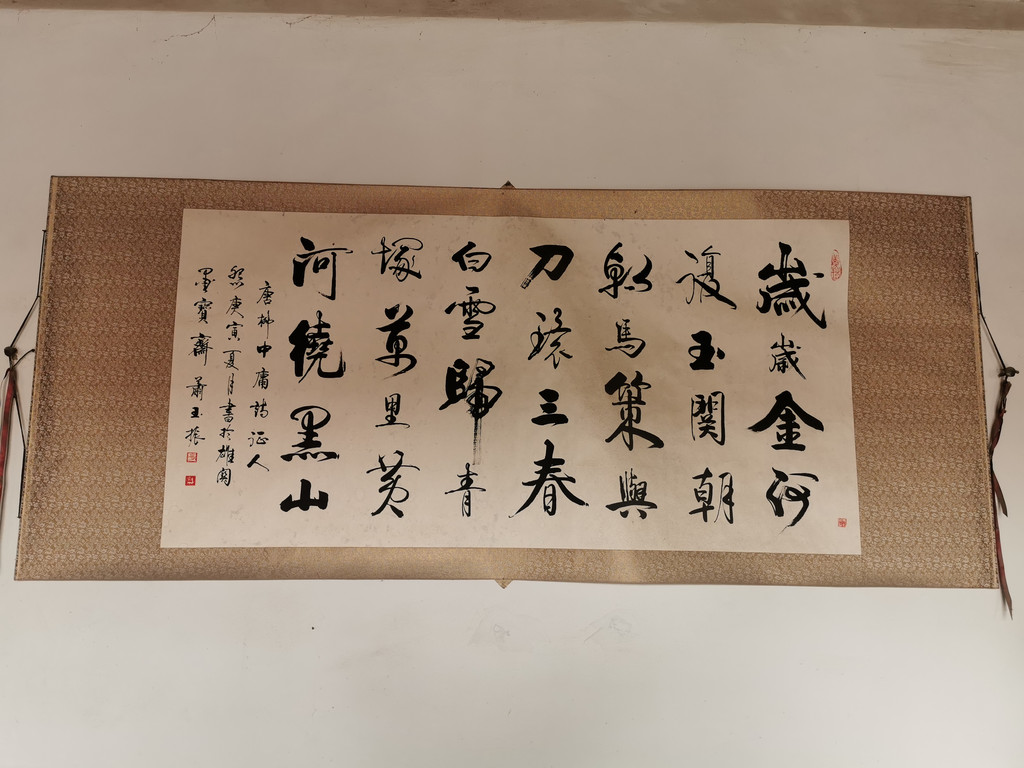 歲歲金河
復玉關朝
朝馬策與
刀環三春
白雪歸青
塚萬里黃
河繞黑山
唐柳中庸詩征人
怨庚寅夏月書於雄関
墨寶齋 蕭玉振